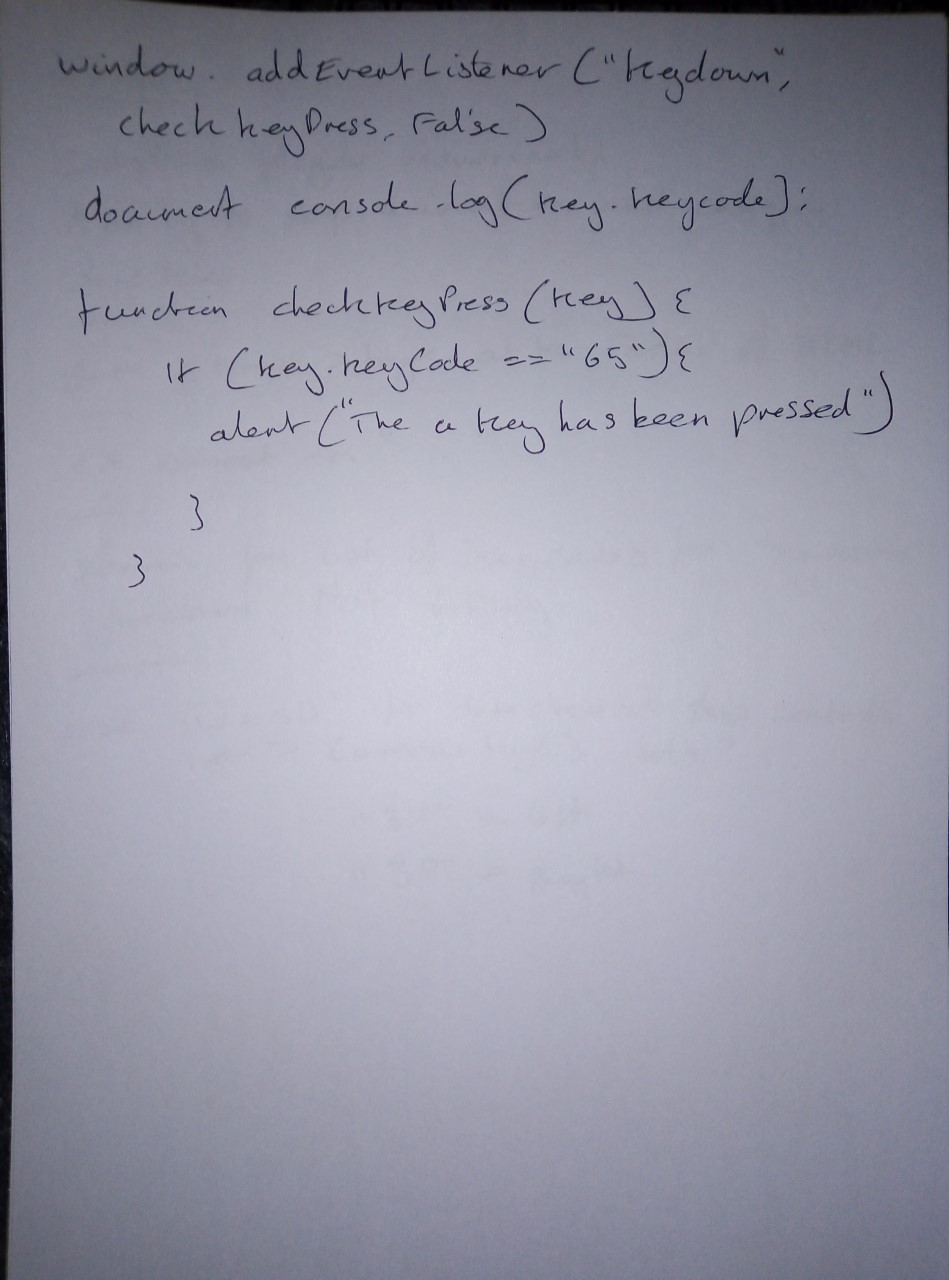 window. addEventListener ("keydown",
checkkeyPress, False)
document console.log(key.keycode);
function checkkeyPress (key) {
if (key.keyCode == "65"){
alert ("The a key has been pressed")
}
}